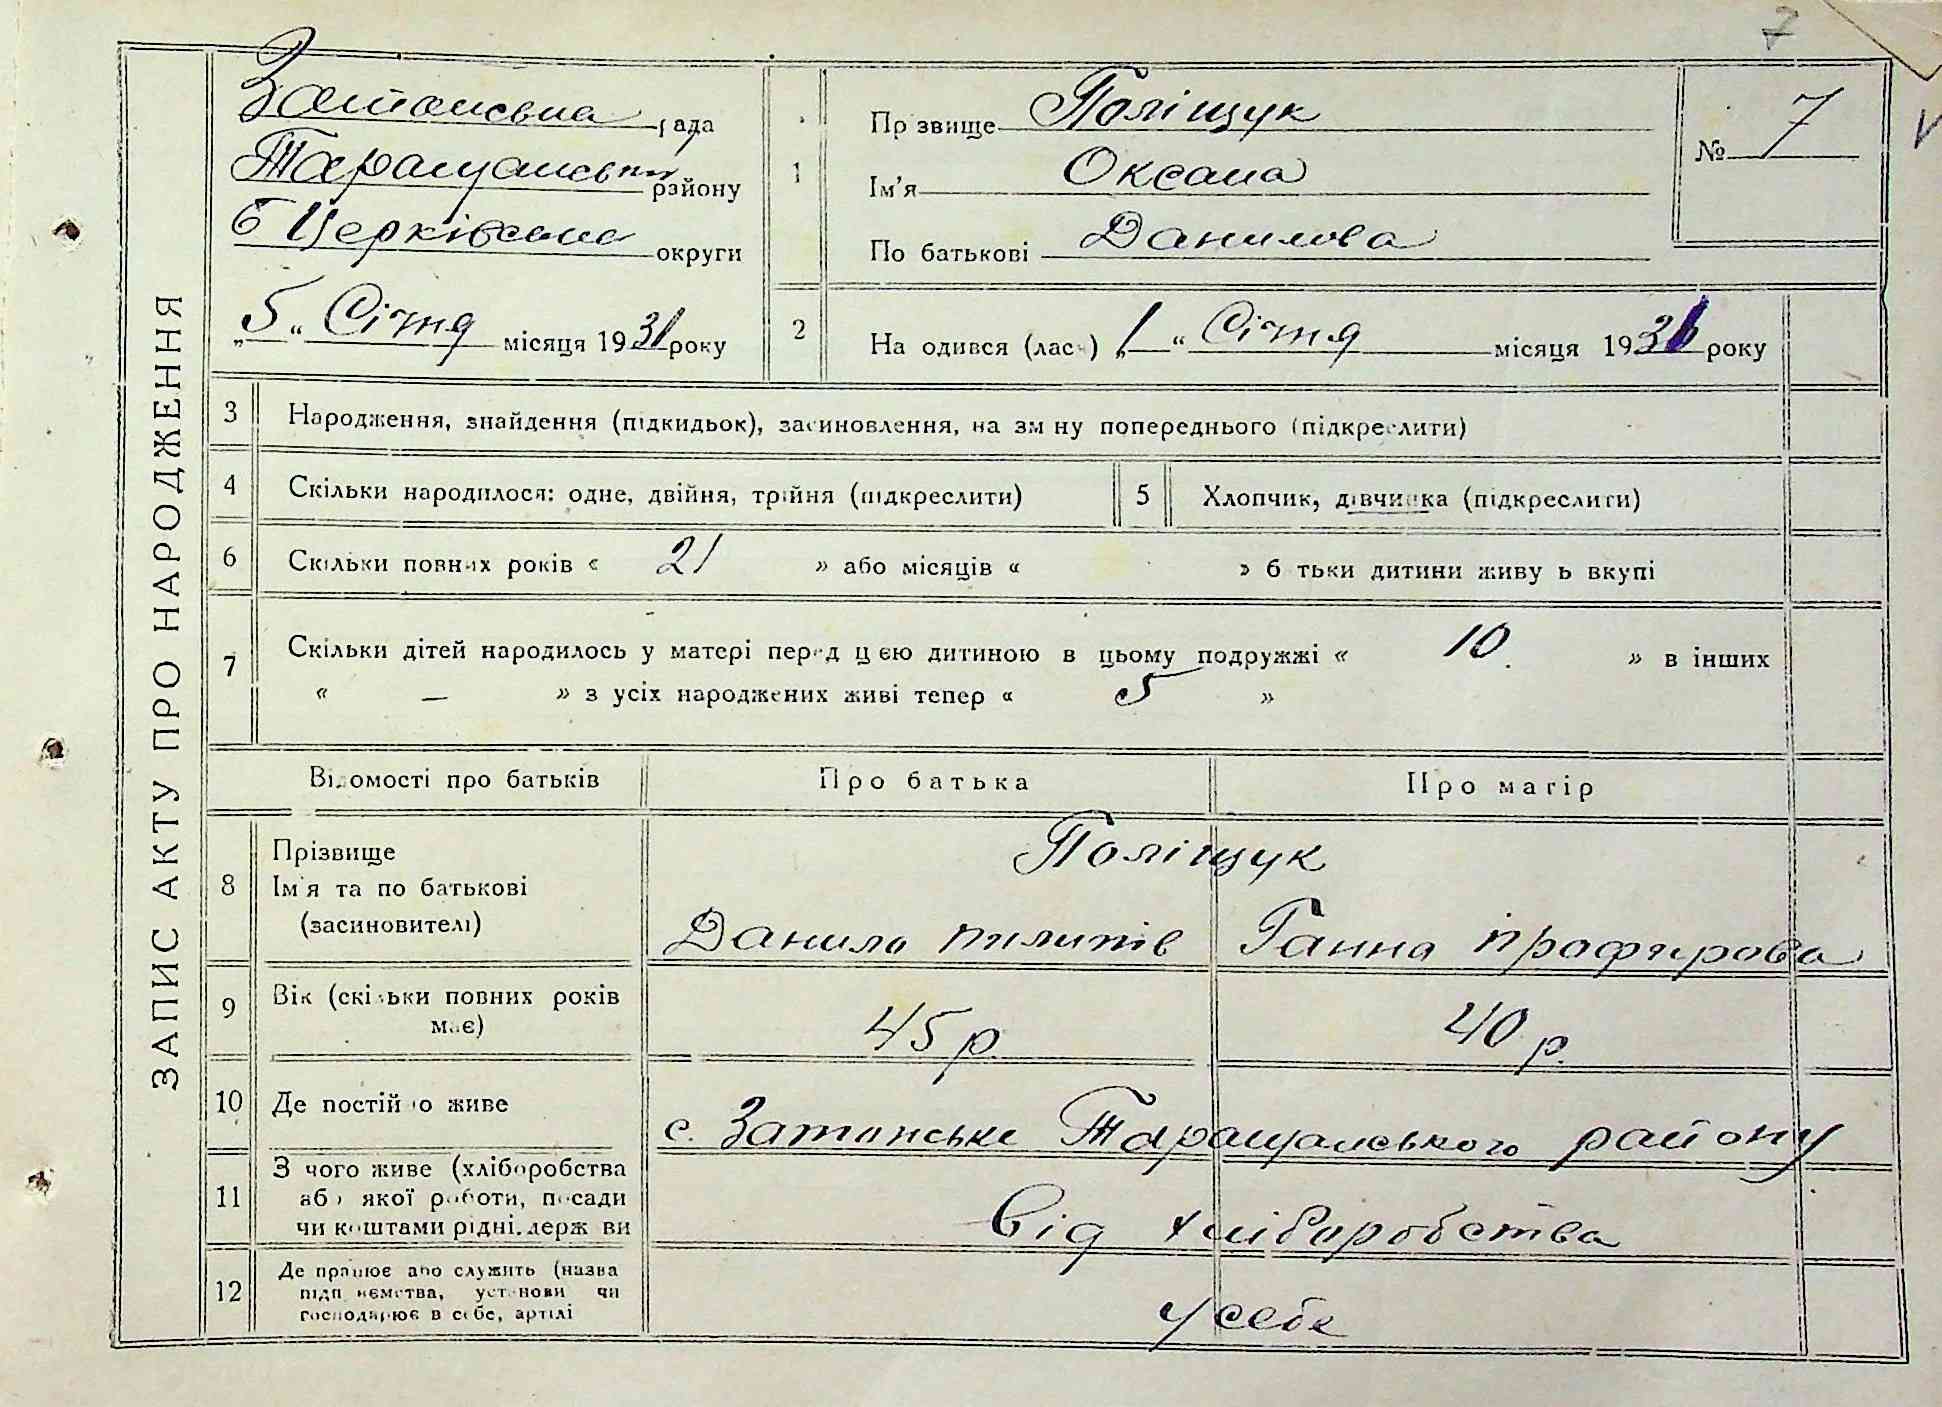 7
ЗАПИС АКТУ ПРО НАРОДЖЕННЯ
Затонська рада
Таращанськ району
б Церківська округи
„5“ Січня місяця 1931 року
1
Прізвище Поліщук
Ім'я Оксана
По батькові Данилова
№ 7
V
2
На одився (лась) „1“ Січня місяця 1931 року
3 Народження, знайдення (підкидьок), засиновлення, на зм ну попереднього (підкреслити)
4 Скільки народилося: одне, двійня, трійня (підкреслити)
5 Хлопчик, дівчинка (підкреслити)
6 Скільки повних років « 21 » або місяців « » б тьки дитини живу ь вкупі
7 Скільки дітей народилось у матері перед цією дитиною в цьому подружжі « 10. » в інших
« — » з усіх народжених живі тепер « 5 »
Відомості про батьків Про батька Про матір
8 Прізвище
Ім'я та по батькові
(засиновителі)
Поліщук
Данило пилипів Ганна прафирова
9 Вік (скільки повних років
має)
45 р. 40 р.
10 Де постійно живе
с. Затонське Таращанського району
11 З чого живе (хліборобства
або якої роботи, посади
чи коштами рідні, держ ви
Від хліборобства
12 Де працює або служить (назва
підп ємства, установи чи
господарює в себе, артілі
у себе